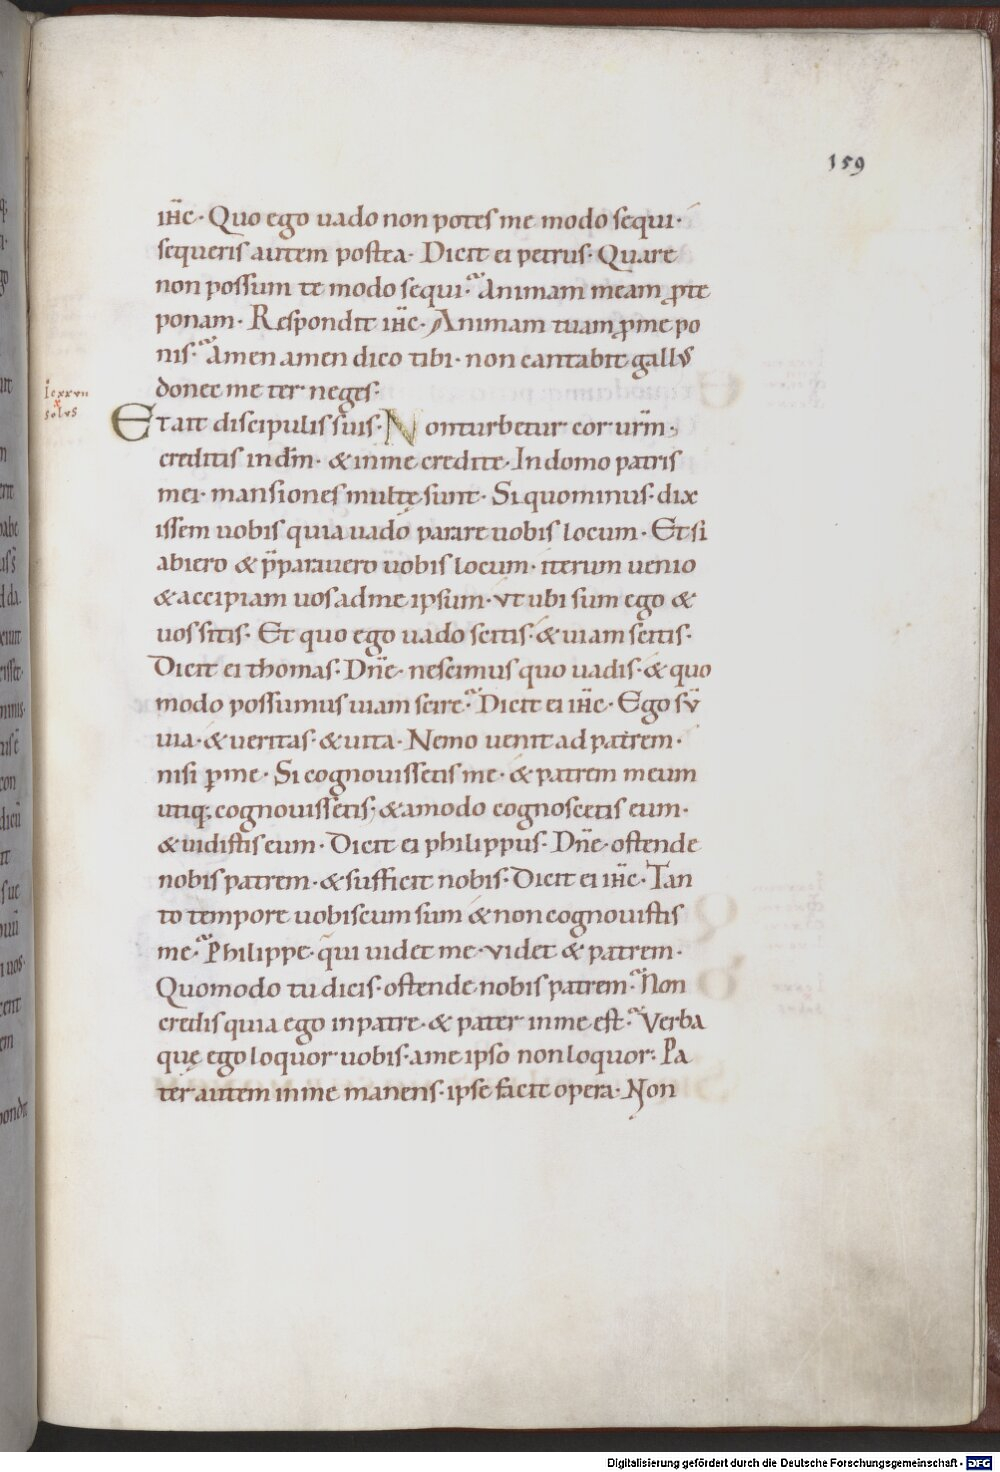 159
ihc̄· Quo ego uado non potes me modo sequi·
sequeris autem postea· Dicit ei petrus· Quare
non possum te modo sequi· Animam meam ꝓ te
ponam· Respondit ihc̄· Animam tuam ꝓ me po
nis· Amen amen dico tibi· non cantabit gallus
donec me ter neges·
Et ait discipulis suis· Non turbetur cor urm̄·
creditis in dm̄· & in me credite· In domo patris
mei· mansiones multę sunt· Si quo minus· dix
issem uobis quia uado parare uobis locum· Et si
abiero & p̄parauero uobis locum· iterum uenio
& accipiam uos ad me ipsum· vt ubi sum ego &
uos sitis· Et quo ego uado scitis· & uiam scitis·
Dicit ei thomas· Dn̄e· nescimus quo uadis· & quo
modo possumus uiam scire· Dicit ei ihc̄· Ego sū
uia· & ueritas· & uita· Nemo uenit ad patrem·
nisi ꝑ me· Si cognouissetis me· & patrem meum
utiq; cognouissetis; & amodo cognoscetis eum·
& uidistis eum· Dicit ei philippus· Dn̄e· ostende
nobis patrem· & sufficit nobis· Dicit ei ihc̄· Tan
to tempore uobiscum sum & non cognouistis
me· Philippe· qui uidet me· videt & patrem·
Quomodo tu dicis· ostende nobis patrem· Non
credis quia ego in patre· & pater in me est· Verba
quę ego loquor uobis· a me ipso non loquor· Pa
ter autem in me manens· ipse facit opera· Non
Digitalisierung gefördert durch die Deutsche Forschungsgemeinschaft - DFG